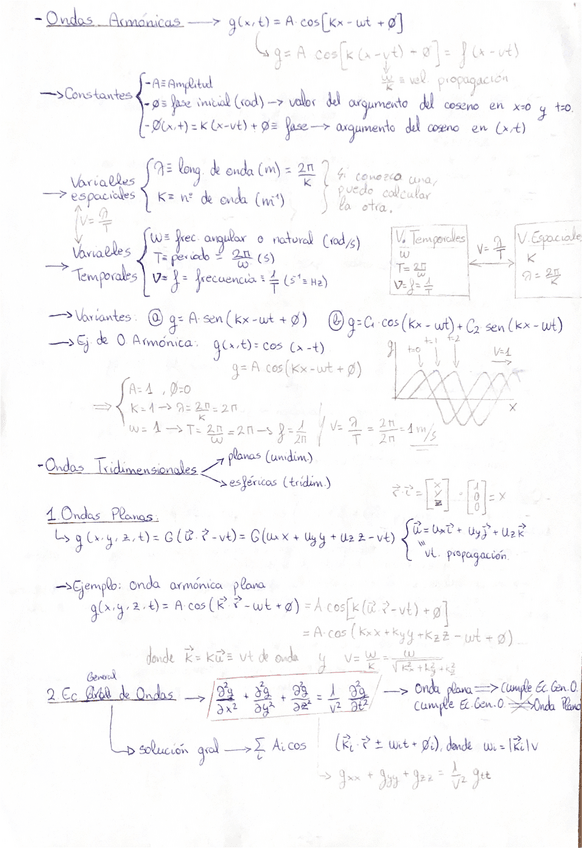 - Ondas Armónicas → g(x,t) = A·cos[kx - wt + ø]
↳ g = A cos[k(x - vt) - ø] = f(x - vt)
w/k ≡ vel propagación
→ Constantes { - A ≡ Amplitud
- ø ≡ fase inicial (rad) → valor del argumento del coseno en x=0 y t=0.
- Ø(x,t) = k(x-vt) + ø ≡ fase → argumento del coseno en (x,t)
→ Variables espaciales { λ ≡ long. de onda (m) = 2π/k
k ≡ nº de onda (m⁻¹)
} si conozco una, puedo calcular la otra.
V = λ/T
→ Variables Temporales { w ≡ frec. angular o natural (rad/s)
T ≡ periodo = 2π/w (s)
ν = f = frecuencia = 1/T (s⁻¹ ≡ Hz)
V. Temporales
w
T = 2π/w
ν = f = 1/T
V = λ/T
V. Espaciales
k
λ = 2π/k
→ Variantes: ⓐ g = A·sen(kx - wt + ø) ⓑ g = C₁·cos(kx - wt) + C₂ sen(kx - wt)
→ Ej de O. Armónica: g(x,t) = cos(x - t)
g = A cos(kx - wt + ø)
⇒ { A = 1 , ø = 0
k = 1 → λ = 2π/k = 2π
w = 1 → T = 2π/w = 2π → f = 1/2π / V = λ/T = 2π/2π = 1 m/s
g
t=0 t=1 t=2
V=1
x
- Ondas Tridimensionales → planas (unidim)
→ esféricas (tridim.)
r⃗ · i⃗ = [x y z] · [1 0 0] = x
1 Ondas Planas:
↳ g(x,y,z,t) = G(u⃗·r⃗ - vt) = G(uₓx + u_y y + u_z z - vt) { u⃗ = uₓi⃗ + u_y j⃗ + u_z k⃗
vt. propagación
→ Ejemplo: onda armónica plana
g(x,y,z,t) = A·cos(k⃗·r⃗ - wt + ø) = A cos[k(u⃗·r⃗ - vt) + ø]
= A·cos(kₓx + k_y y + k_z z - wt + ø)
donde k⃗ = ku⃗ ≡ vt de onda y v = w/k = w/√(kₓ² + k_y² + k_z²)
2 Ec General de Ondas → ∂²g/∂x² + ∂²g/∂y² + ∂²g/∂z² = 1/v² ∂²g/∂t² → Onda plana ⇒ cumple Ec. Gen. O.
cumple Ec. Gen. O. ⇏ Onda Plana
↳ solución gral → Σᵢ Aᵢ cos (k⃗ᵢ·r⃗ ± wᵢt + øᵢ), donde wᵢ = |k⃗ᵢ| v
→ gₓₓ + g_yy + g_zz = 1/v² g_tt